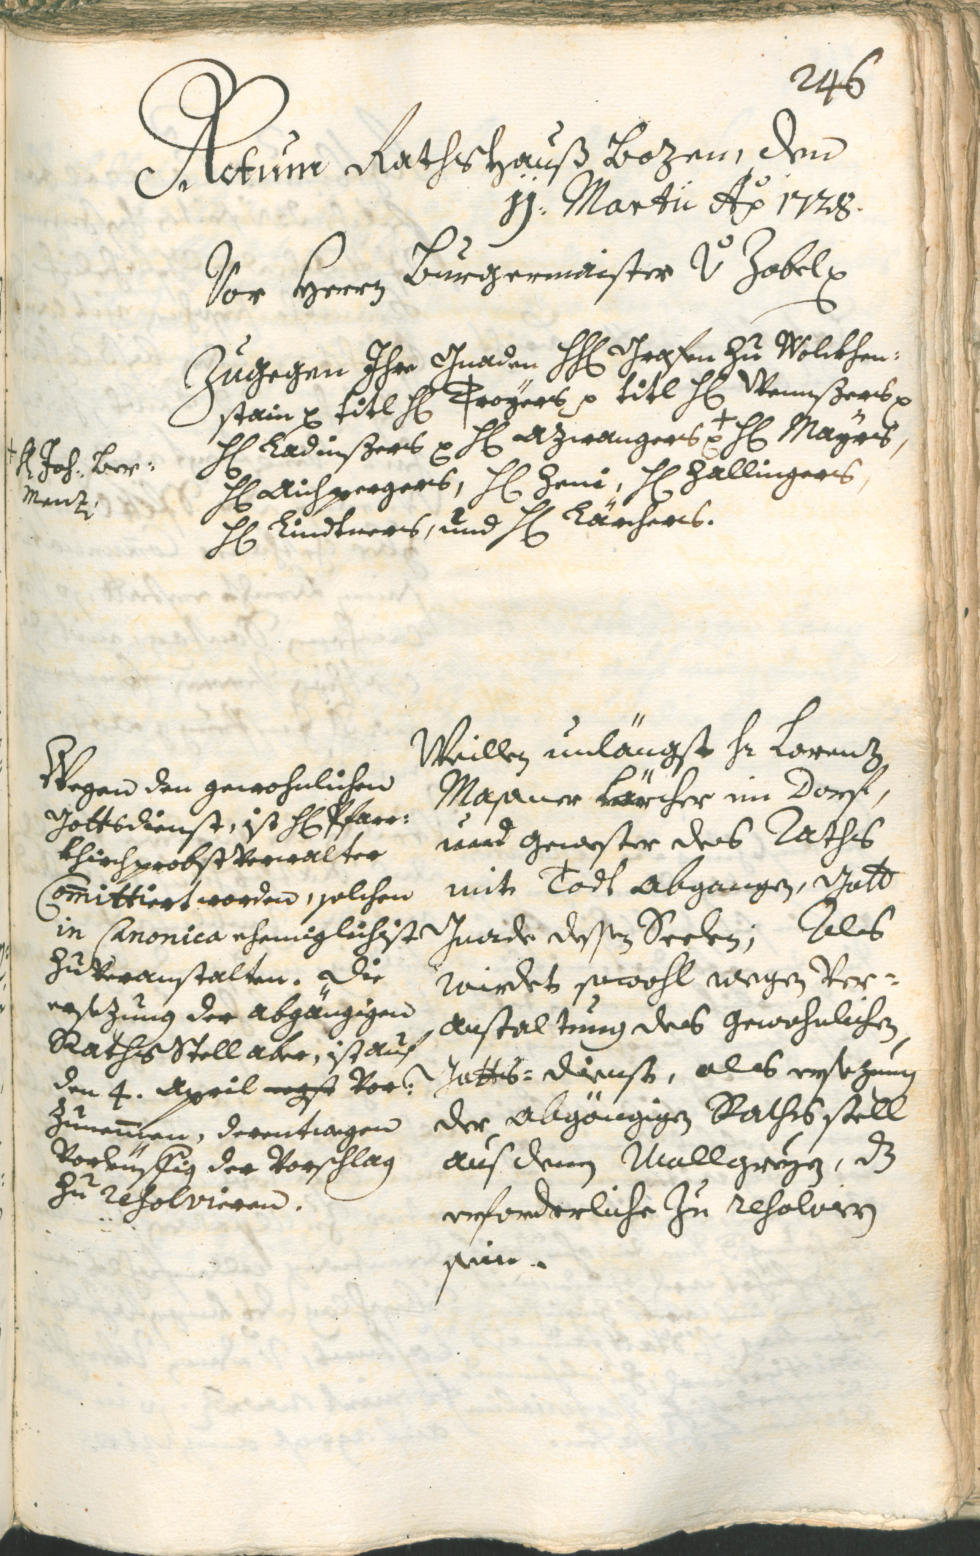 246
Actum Rathshauß Bozen, den
11. Martii Aõ 1728.
Vor Herrn Burgermaister v Zobel p
Zugegen Ihro Gnaden HH Grafen zu Wolckhen-
stain p titl H Troyers p titl H Wenßers p
H Ladinßers p H Azwangers p + H Mayrs,
+ H Joh. Ber-
mentz
H Aichpergers, H Zeni, H Hallingers,
H Lindtners, und H Kärchers.
Weillen unlängst hr Lorentz
Masaner Kärcher im Dorf,
und gewester des Raths
mit Todt abgangen, Gott
Gnade dessen Seelen; Als
wirdet sowohl wegen Ver-
anstaltung des gewohnlichen
Gotts-dienst, als ersezung
der abgängigen Rathsstell
aus denen Wallgrezen, dz
erforderliche zu resolvirn
sein.
Wegen den gewohnlichen
Gottsdienst, ist H Pfarr-
khirchprobst Verwalter
Committiert worden, solchen
in Canonica ehemiglichist
zu Veranstalten. Die
ersezung der abgängigen
Raths Stell aber, ist auf
den 4. April Vor-
zunemen, derentwegen
Vorleuffig der Vorschlag
zu resolvieren.